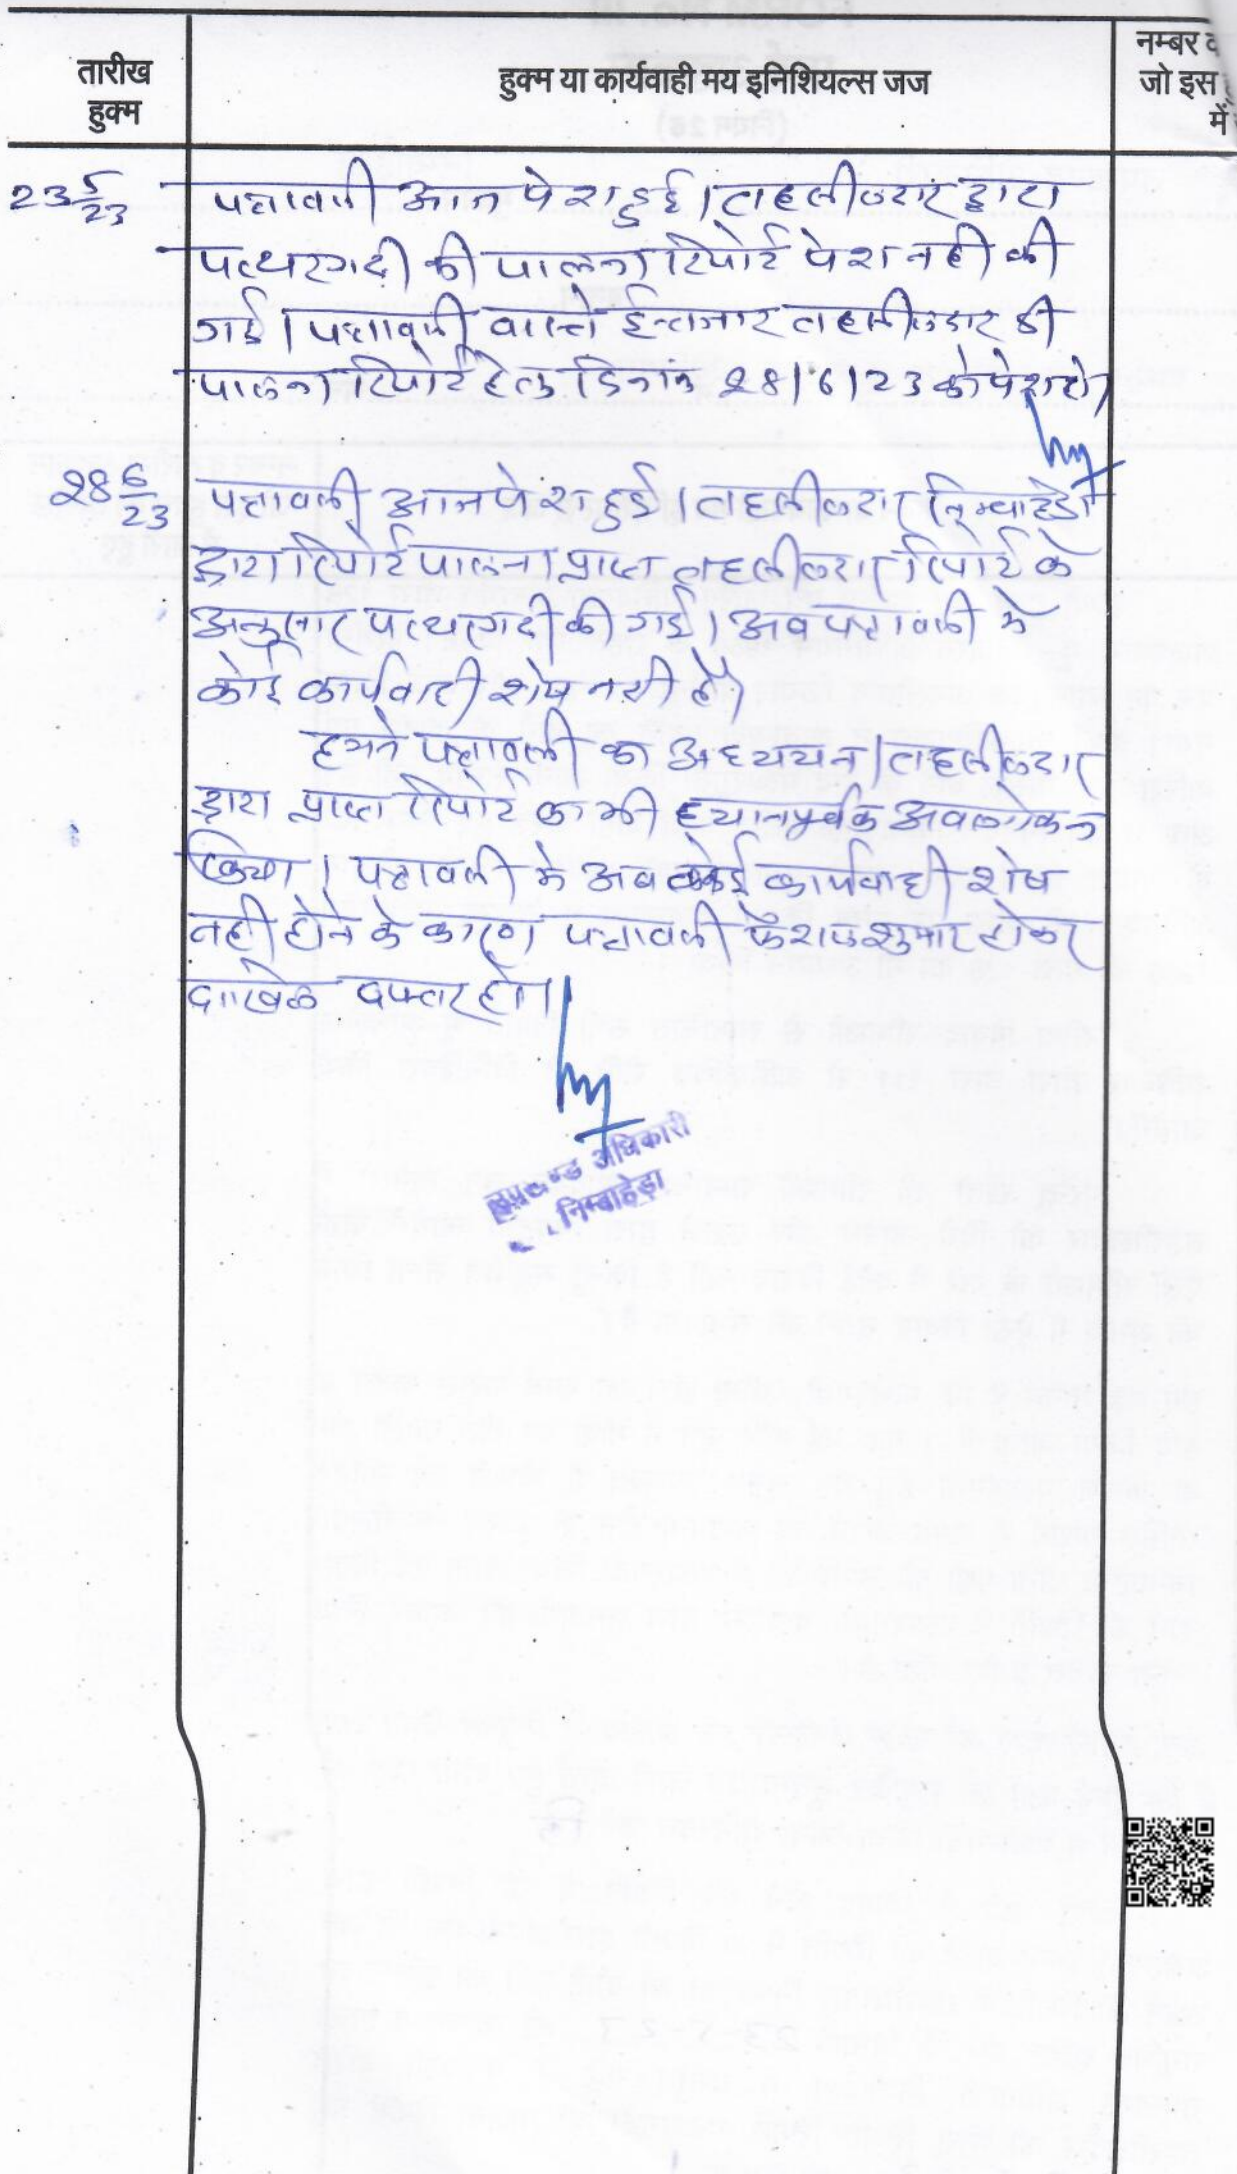 तारीख
हुक्म
हुक्म या कार्यवाही मय इनिशियल्स जज
नम्बर व
जो इस
में
23 5/23 पत्रावली आज पेश हुई। तहसीलदार द्वारा
पत्थरगढी की पालना रिपोर्ट पेश नही की
गई। पत्रावली वास्ते ईन्तजार तहसीलदार की
पालना रिपोर्ट हेतु दिनांक 28/6/23 को पेश हो।
28 6/23 पत्रावली आज पेश हुई। तहसीलदार निम्बाहेडा
द्वारा रिपोर्ट पालना प्राप्त तहसीलदार रिपोर्ट के
अनुसार पत्थरगढी की गई। अब पत्रावली मे
कोई कार्यवाही शेष नही है।
हमने पत्रावली का अध्ययन। तहसीलदार
द्वारा प्राप्त रिपोर्ट का भी ध्यानपूर्वक अवलोकन
किया। पत्रावली मे अब कोई कार्यवाही शेष
नही होने के कारण पत्रावली फैशल शुमार होकर
दाखिल दफ्तर हो।
उपखण्ड अधिकारी
निम्बाहेड़ा